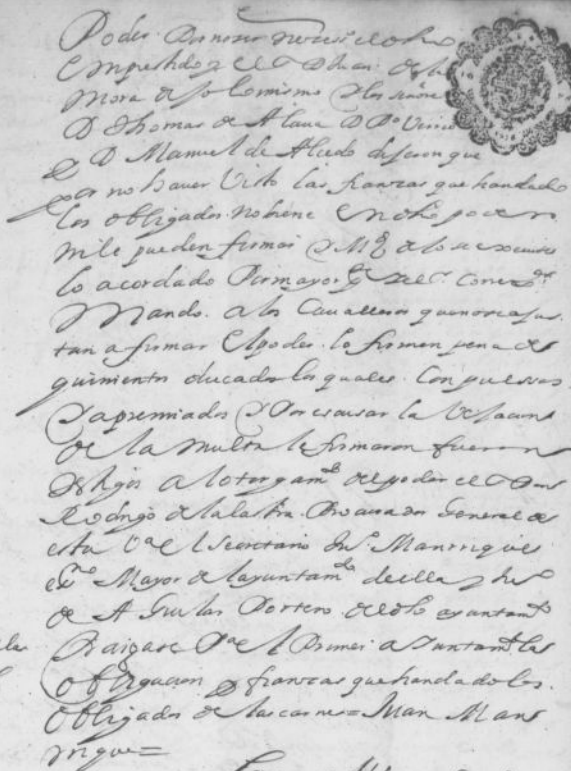 Poder Por no ser
Empeshdo y el Sr Dn Juan de la
Mora dijo lo mismo y los señores
D Thomas de Alaua D Po
D Manuel de Alcedo dijeron que
por no hauer Visto las fianzas que handado
los obligados no tiene En dho poder
ni le pueden firmar y
lo acordado Por mayor el Sr Correxor
Mando a los Caualleros que
tan a firmar El poder lo firmen pena de
quinientos ducados los quales Compulsos
y apremiados y Por escusar la Vejacion
de la multa le firmaron fueron
testigos a lotorgamto del poder el Sr Don
Rodrigo de la lastra Procurador General de
esta Va el Secretario Juo Manrrique
esno Mayor del ayuntamto de ella y
de Aguilar Portero de dho ayuntamto
Traigase Pa el Primer ayuntamto las
Obligacion y fianzas que handado los
Obligados de las carnes = Juan Man
rrique =